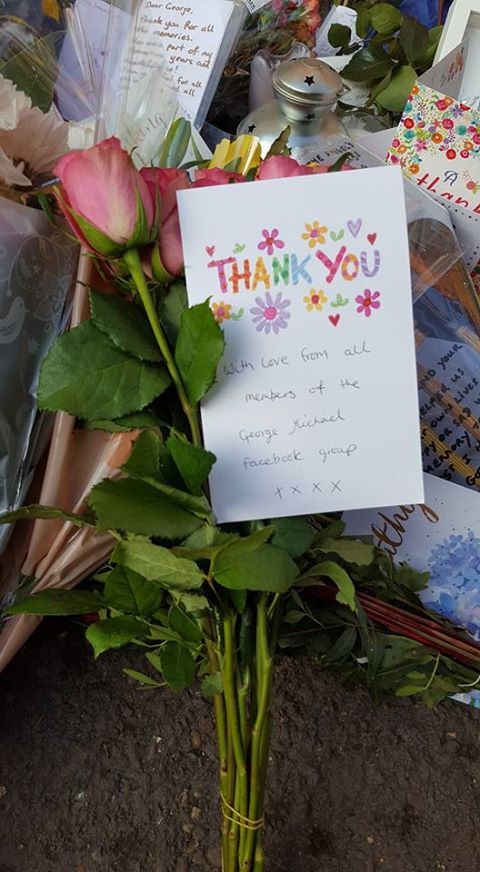 Dear George,
Thank you for all
the memories.
part of my
years and
for all
all
THANK YOU
With Love from all
members of the
George Michael
Facebook group
x x x x